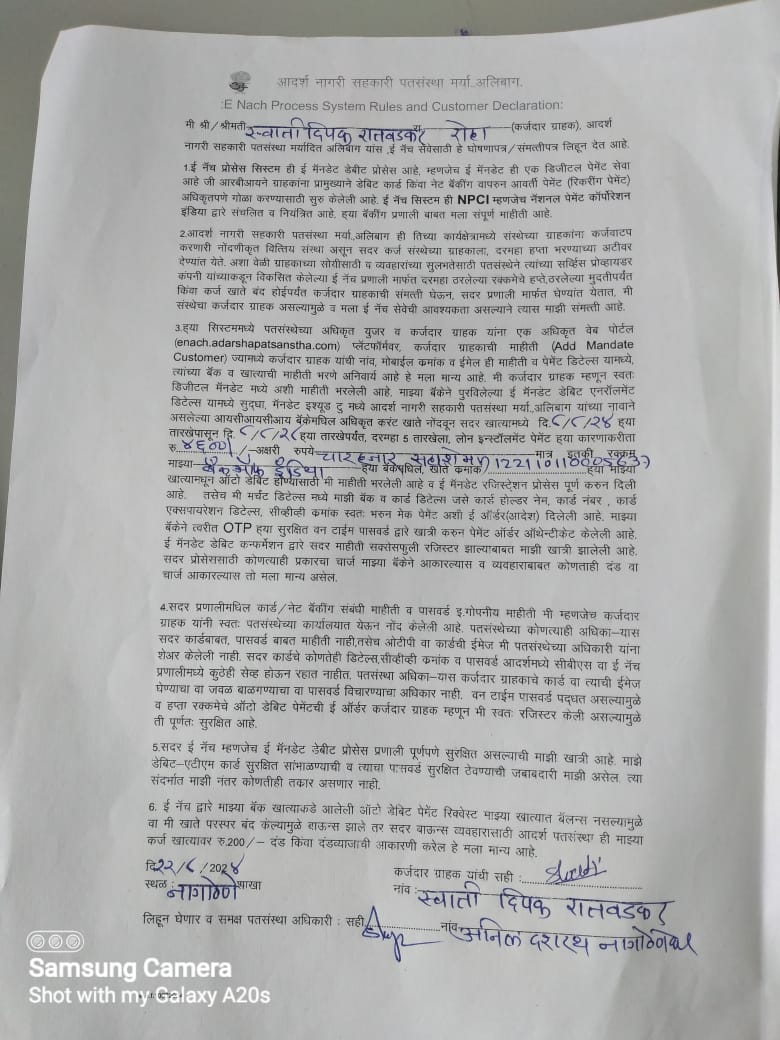 आदर्श नागरी सहकारी पतसंस्था मर्या.अलिबाग.
:E Nach Process System Rules and Customer Declaration:
मी श्री/श्रीमती स्वाती दिपक रातवडकर रा रोहा (कर्जदार ग्राहक), आदर्श
नागरी सहकारी पतसंस्था मर्यादित अलिबाग यांस ,ई नॅच सेवेसाठी हे घोषणापत्र/संमत्तीपत्र लिहून देत आहे.
1.ई नॅच प्रोसेस सिस्टम ही ई मॅनडेट डेबीट प्रोसेस आहे, म्हणजेच ई मॅनडेट ही एक डिजीटल पेमेंट सेवा
आहे जी आरबीआयने ग्राहकांना प्रामुख्याने डेबिट कार्ड किंवा नेट बॅंकींग वापरुन आवर्ती पेमेंट (रिकरींग पेमेंट)
अधिकृतपणे गोळा करण्यासाठी सुरु केलेली आहे. ई नॅच सिस्टम ही NPCI म्हणजेच नॅशनल पेमेंट कॉर्पोरेशन
इंडिया द्वारे संचलित व नियंत्रित आहे. ह्या बॅंकींग प्रणाली बाबत मला संपूर्ण माहीती आहे.
2.आदर्श नागरी सहकारी पतसंस्था मर्या.,अलिबाग ही तिच्या कार्यक्षेत्रामध्ये संस्थेच्या ग्राहकांना कर्जवाटप
करणारी नोंदणीकृत वित्तिय संस्था असून सदर कर्ज संस्थेच्या ग्राहकाला, दरमहा हप्ता भरण्याच्या अटीवर
देण्यांत येते. अशा वेळी ग्राहकाच्या सोयीसाठी व व्यवहारांच्या सुलभतेसाठी पतसंस्थेने त्यांच्या सर्व्हिस प्रोव्हायडर
कंपनी यांच्याकडून विकसित केलेल्या ई नॅच प्रणाली मार्फत दरमहा ठरलेल्या रक्कमेचे हप्ते,ठरलेल्या मुदतीपर्यंत
किंवा कर्ज खाते बंद होईपर्यंत कर्जदार ग्राहकाची संमत्ती घेऊन, सदर प्रणाली मार्फत घेण्यांत येतात, मी
संस्थेचा कर्जदार ग्राहक असल्यामुळे व मला ई नॅच सेवेची आवश्यकता असल्याने त्यास माझी संमत्ती आहे.
3.ह्या सिस्टममध्ये पतसंस्थेच्या अधिकृत युजर व कर्जदार ग्राहक यांना एक अधिकृत वेब पोर्टल
(enach.adarshapatsanstha.com) प्लॅटफॉर्मवर, कर्जदार ग्राहकाची माहीती (Add Mandate
Customer) ज्यामध्ये कर्जदार ग्राहक यांची नांव, मोबाईल क्रमांक व ईमेल ही माहीती व पेमेंट डिटेल्स यामध्ये,
त्यांच्या बॅंक व खात्याची माहीती भरणे अनिवार्य आहे हे मला मान्य आहे. मी कर्जदार ग्राहक म्हणून स्वतः
डिजीटल मॅनडेट मध्ये अशी माहीती भरलेली आहे. माझ्या बॅंकेने पुरविलेल्या ई मॅनडेट डेबिट एनरॉलमेंट
डिटेल्स यामध्ये सुद्धा, मॅनडेट इश्यूड टु मध्ये आदर्श नागरी सहकारी पतसंस्था मर्या.,अलिबाग यांच्या नावाने
असलेल्या आयसीआयसीआय बॅंकेमधिल अधिकृत करंट खाते नोंदवून सदर खात्यामध्ये दि.
तारखेपासून दि. ह्या तारखेपर्यंत, दरमहा 5 तारखेला, लोन इन्स्टॉलमेंट पेमेंट ह्या कारणाकरीता
रु. ४६००/-अक्षरी रुपये चार हजार सहाशे मात्र इतकी रक्कम
माझ्या बॅंक ऑफ इंडिया ह्या बॅंकेमधिल, खाते क्रमांक ह्या माझ्या
खात्यामधून ऑटो डेबिट होण्यासाठी मी माहीती भरलेली आहे व ई मॅनडेट रजिस्ट्रेशन प्रोसेस पूर्ण करुन दिली
आहे. तसेच मी मर्चंट डिटेल्स मध्ये माझी बॅंक व कार्ड डिटेल्स जसे कार्ड होल्डर नेम, कार्ड नंबर , कार्ड
एक्सपायरेशन डिटेल्स, सीव्हीव्ही क्रमांक स्वतः भरुन मेक पेमेंट अशी ई ऑर्डर(आदेश) दिलेली आहे. माझ्या
बॅंकेने त्वरीत OTP ह्या सुरक्षित वन टाईम पासवर्ड द्वारे खात्री करुन पेमेंट ऑर्डर ऑथेन्टीकेट केलेली आहे.
ई मॅनडेट डेबिट कन्फर्मेशन द्वारे सदर माहीती सक्सेसफुली रजिस्टर झाल्याबाबत माझी खात्री झालेली आहे.
सदर प्रोसेससाठी कोणत्याही प्रकारचा चार्ज माझ्या बॅंकेने आकारल्यास व व्यवहाराबाबत कोणताही दंड वा
चार्ज आकारल्यास तो मला मान्य असेल.
4.सदर प्रणालीमधिल कार्ड/नेट बॅंकींग संबंधी माहीती व पासवर्ड इ.गोपनीय माहीती मी म्हणजेच कर्जदार
ग्राहक यांनी स्वतः पतसंस्थेच्या कार्यालयात येऊन नोंद केलेली आहे. पतसंस्थेच्या कोणत्याही अधिका–यास
सदर कार्डबाबत, पासवर्ड बाबत माहीती नाही,तसेच ओटीपी वा कार्डची ईमेज मी पतसंस्थेच्या अधिकारी यांना
शेअर केलेली नाही. सदर कार्डचे कोणतेही डिटेल्स,सीव्हीव्ही क्रमांक व पासवर्ड आदर्शमध्ये सीबीएस वा ई नॅच
प्रणालीमध्ये कुठेही सेव्ह होऊन रहात नाहीत. पतसंस्था अधिका–यास कर्जदार ग्राहकाचे कार्ड वा त्याची ईमेज
घेण्याचा वा जवळ बाळगण्याचा वा पासवर्ड विचारण्याचा अधिकार नाही. वन टाईम पासवर्ड पद्धत असल्यामुळे
व हप्ता रक्कमेचे ऑटो डेबिट पेमेंटची ई ऑर्डर कर्जदार ग्राहक म्हणून मी स्वतः रजिस्टर केली असल्यामुळे
ती पूर्णतः सुरक्षित आहे.
5.सदर ई नॅच म्हणजेच ई मॅनडेट डेबीट प्रोसेस प्रणाली पूर्णपणे सुरक्षित असल्याची माझी खात्री आहे. माझे
डेबिट–एटीएम कार्ड सुरक्षित सांभाळण्याची व त्याचा पासवर्ड सुरक्षित ठेवण्याची जबाबदारी माझी असेल. त्या
संदर्भात माझी नंतर कोणतीही तकार असणार नाही.
6. ई नॅच द्वारे माझ्या बॅंक खात्याकडे आलेली ऑटो डेबिट पेमेंट रिक्वेस्ट माझ्या खात्यात बॅलन्स नसल्यामुळे
वा मी खाते परस्पर बंद केल्यामुळे बाऊन्स झाले तर सदर बाऊन्स व्यवहारासाठी आदर्श पतसंस्था ही माझ्या
कर्ज खात्यावर रु.200/– दंड किंवा दंडव्याजाची आकारणी करेल हे मला मान्य आहे.
दि.२२/६/२०२४
कर्जदार ग्राहक यांची सही :
स्थळ : नागोठणे शाखा
नांव: स्वाती दिपक रातवडकर
लिहून घेणार व समक्ष पतसंस्था अधिकारी : सही नांव: अनिल दशरथ नागोठणेकर
Samsung Camera
Shot with my Galaxy A20s